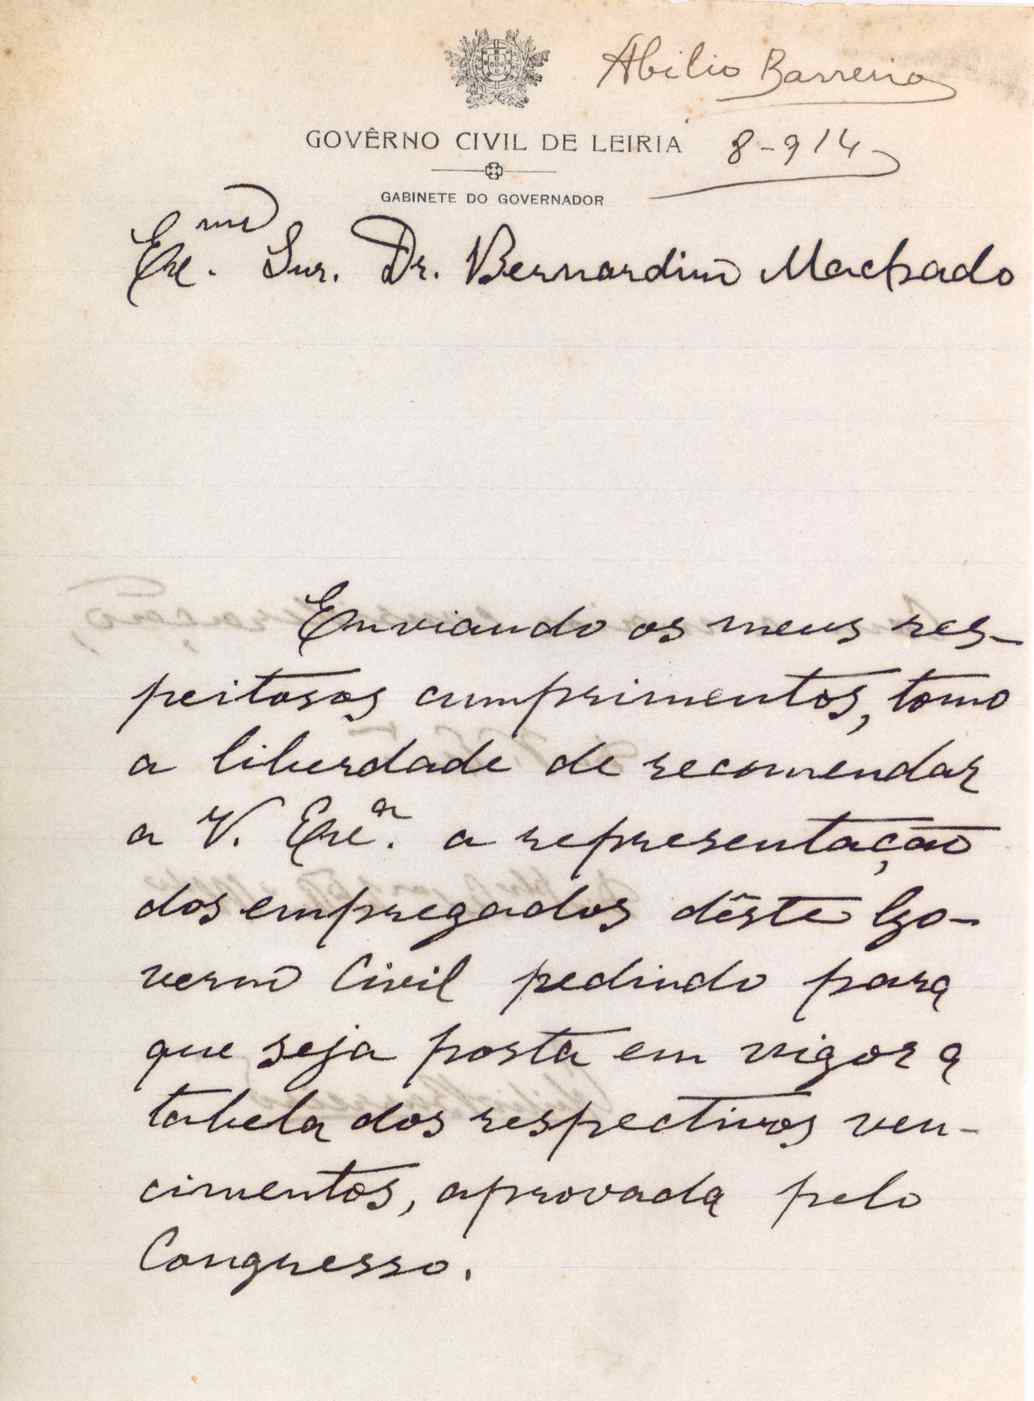 Abilio Barreiro
GOVÊRNO CIVIL DE LEIRIA
8-914
GABINETE DO GOVERNADOR
Exmo. Snr. Dr. Bernardino Machado
Enviando os meus res-
peitosos cumprimentos, tomo
a liberdade de recomendar
a V. Excia. a representação
dos empregados dêste Go-
verno Civil pedindo para
que seja posta em vigor a
tabela dos respectivos ven-
cimentos, aprovada pelo
Congresso.